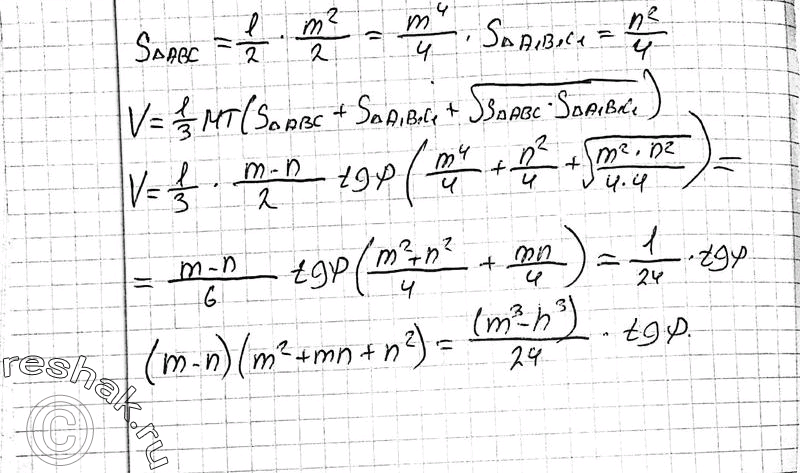 S△ABC = 1/2 · m²/2 = m⁴/4 · S△A₁B₁C₁ = n²/4
V = 1/3 MT(S△ABC + S△A₁B₁C₁ + √(S△ABC · S△A₁B₁C₁))
V = 1/3 · (m-n)/2 tgφ (m⁴/4 + n²/4 + √(m²·n²/4·4)) =
= (m-n)/6 tgφ ((m²+n²)/4 + mn/4) = 1/24 · tgφ
(m-n)(m²+mn+n²) = (m³-n³)/24 · tgφ.
reshak.ru
©